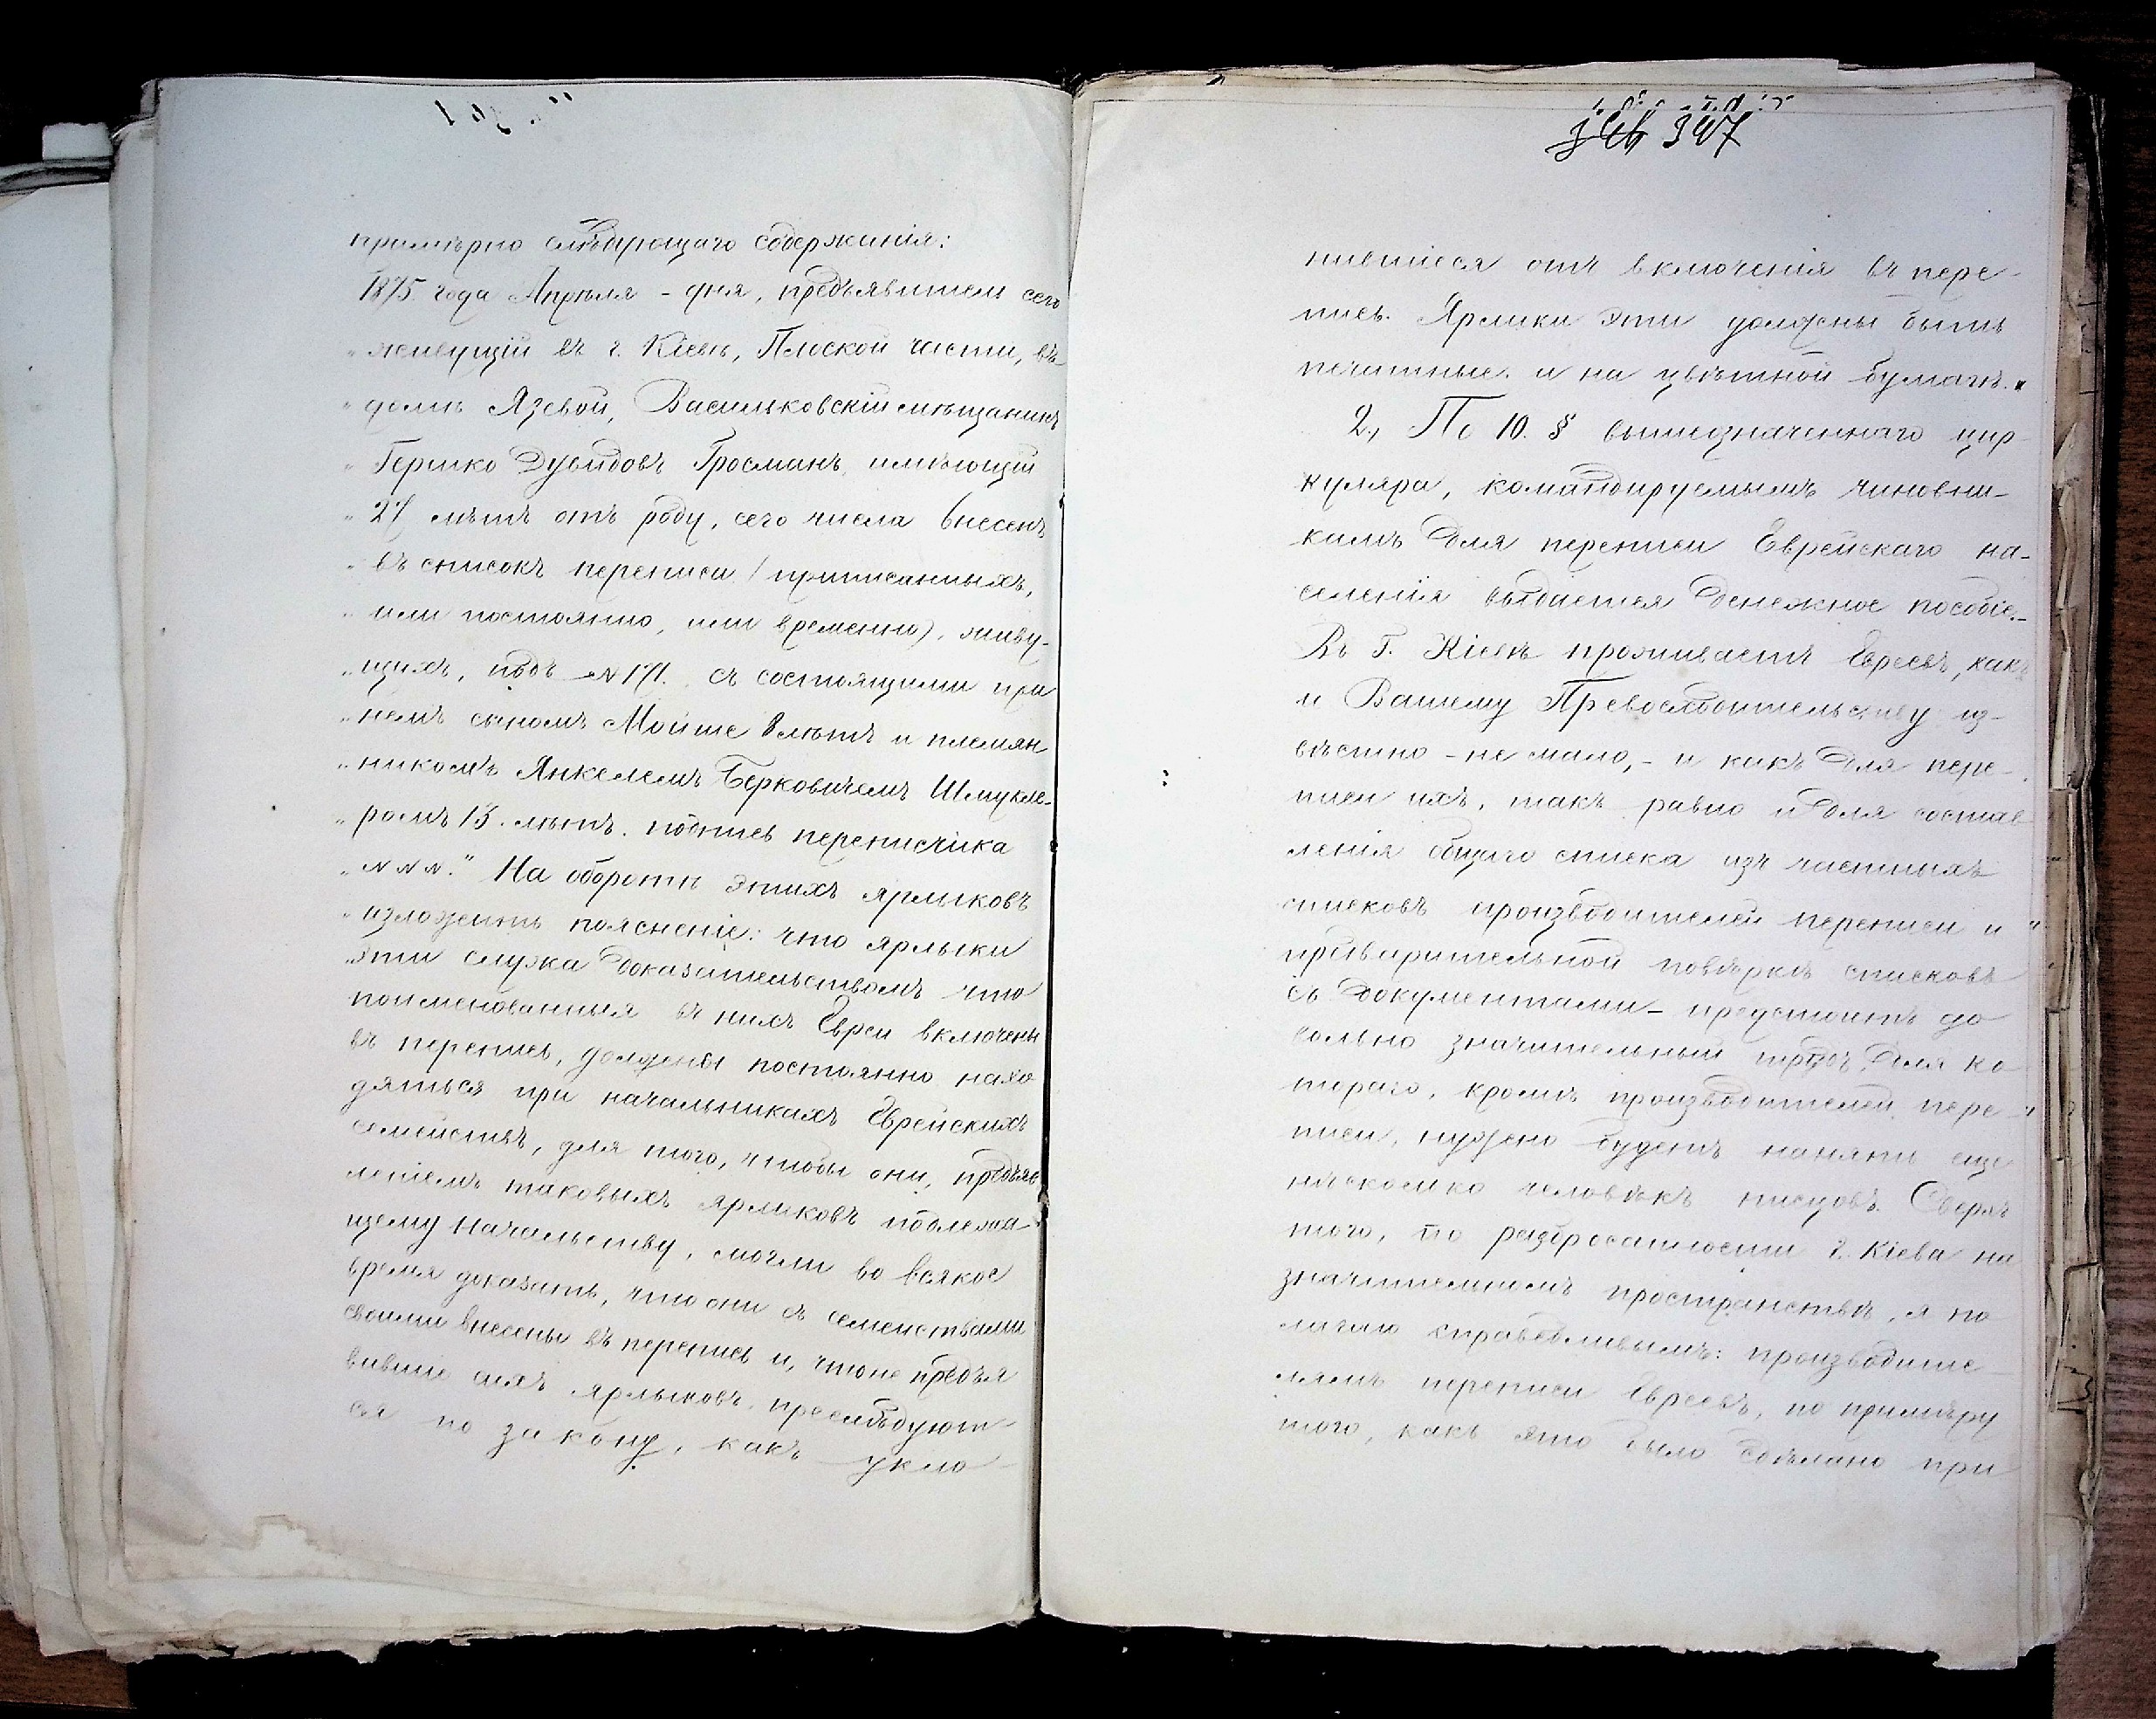 примѣрно слѣдующаго содержанія:
1875 года Апрѣля - дня, предъявитель сего
„ живущій въ г. Кіевѣ, Плоской части, въ
„ домѣ Язевой, Васильковскій мѣщанинъ
„ Гершко Дувидовъ Гросманъ, имѣющій
„ 27 лѣтъ отъ роду, сего числа внесенъ
„ въ списокъ переписи / приписанныхъ,
„ или постоянно, или временно), живу-
„ щихъ, подъ № 171. съ состоящими при
„ немъ сыномъ Мойше 8 лѣтъ и племян
„ никомъ Янкелемъ Берковичемъ Шмукле-
„ ромъ 13. лѣтъ. подпись переписчика
„ N N N." На оборотѣ этихъ ярлыковъ
„ изложить поясненіе: что ярлыки
„ эти служа доказательствомъ что
поименованныя въ нихъ Евреи включены
въ перепись, должны постоянно нахо
дяться при начальникахъ Еврейскихъ
семействъ, для того, чтобы они, предъяв
леніемъ таковыхъ ярлыковъ подлежа-
щему начальству, могли во всякое
время доказать, что они съ семействами
своими внесены въ перепись и, что не предъя
вившіе сихъ ярлыковъ, преслѣдуют-
ся по закону, какъ укло-
347
нившіеся отъ включенія въ пере-
пись. Ярлики эти должны быть
печатные. и на цвѣтной бумагѣ. "
2., По 10. § вышеозначеннаго цир
куляра, командируемымъ чиновни-
камъ для переписи Еврейскаго на-
селенія выдается денежное пособіе.-
Въ Г. Кіевѣ проживаетъ Евреевъ, какъ
и Вашему Превосходительству из-
вѣстно - не мало, - и какъ для пере-
писи ихъ, такъ равно и для состав
ленія общаго списка изъ частныхъ
списковъ производителей переписи и
предварительной повѣркѣ списковъ
съ документами - предстоитъ до
вольно значительный трудъ, для ко
тораго, кромѣ производителей пере-
писи, нужно будетъ нанять еще
нѣсколько человѣкъ писцовъ. Сверхъ
того, по разбросанности г. Кіева на
значительномъ пространствѣ, я по
лагаю справедливымъ: производите-
лямъ переписи Евреевъ, по примѣру
того, какъ это было сдѣлано при